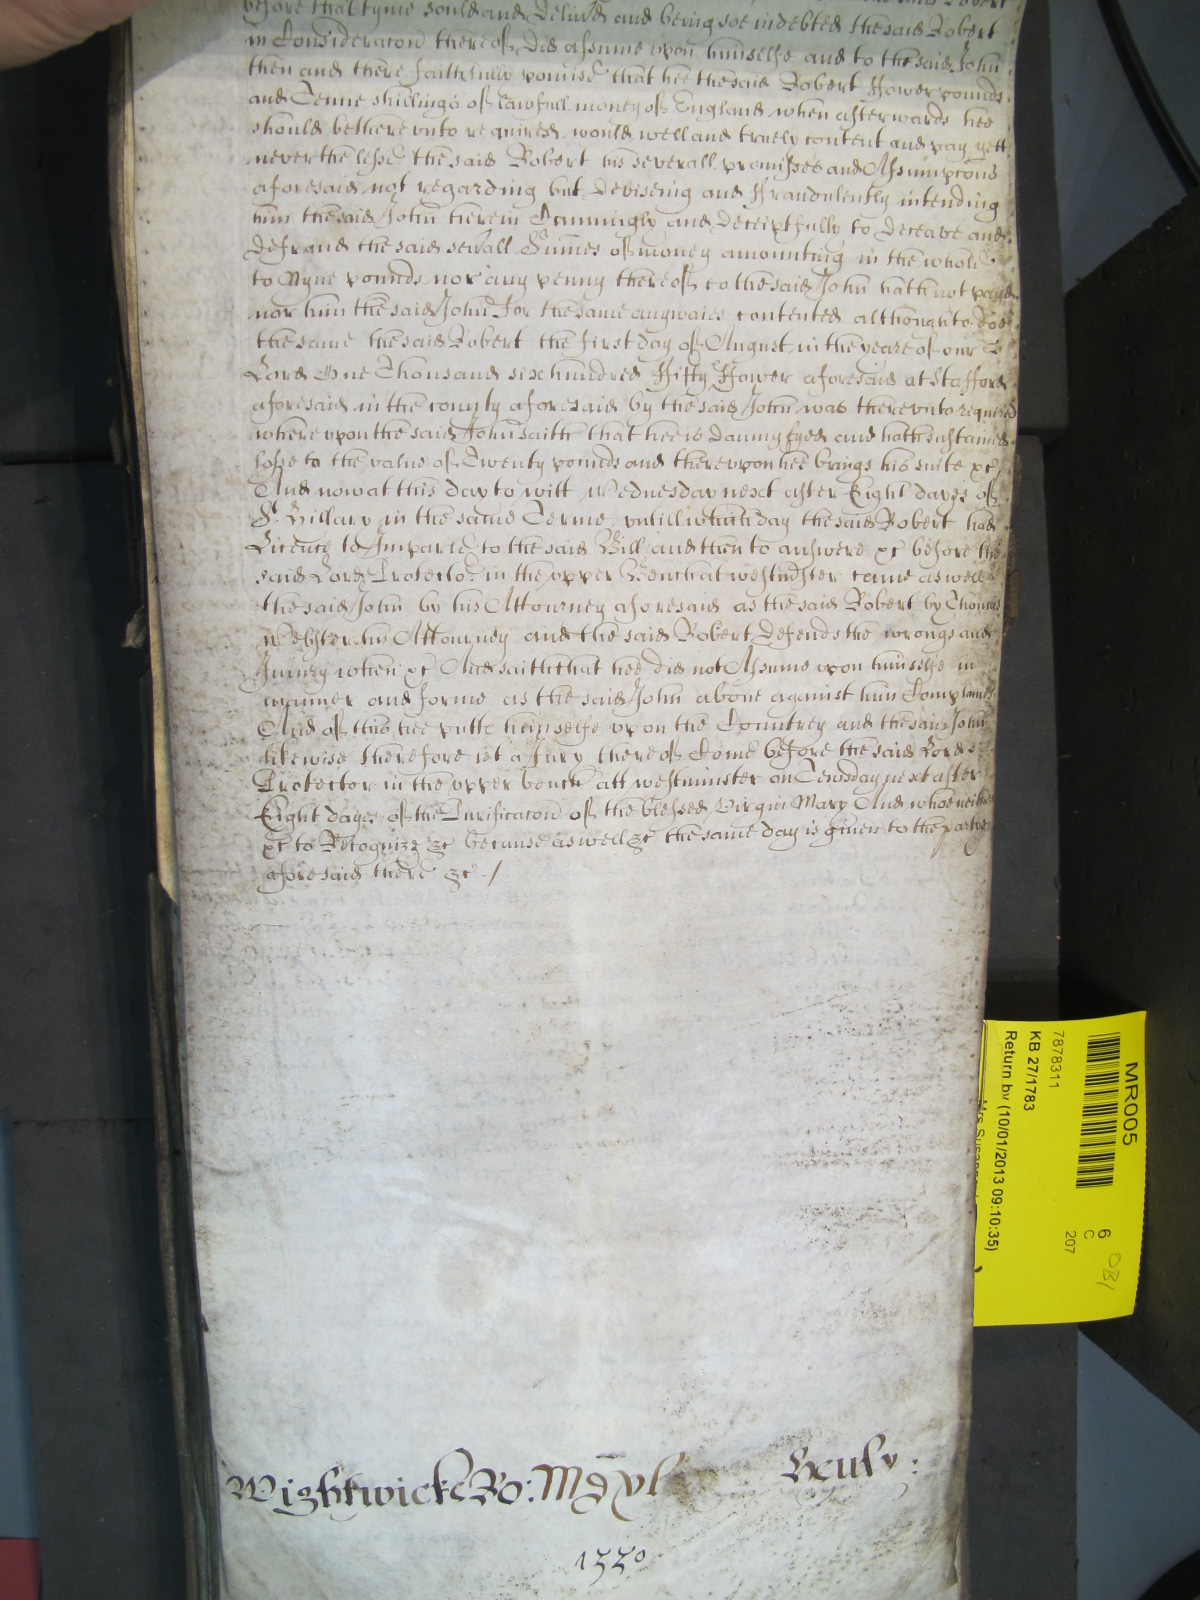 before that tyme sould and deliu'd and being soe indebted the said Robert
in Consideracon thereof did assume vpon himselfe and to the said John
then and there faithfully promise that hee the said Robert ffower pounds
and Tenne shillings of lawfull money of England when afterwards hee
should bethere vnto required would well and truely content and pay yett
neverthelesse the said Robert his severall promisses and Assumpcons
aforesaid not regarding but deviseing and ffraudulently intending
him the said John therein Cunningly and deceiptfully to deceave and
defraud the said sev'all Summes of money amounting in the whole
to Nyne pounds nor any penny thereof to the said John hath not payd
nor him the said John for the same anywaies contented although to doe
the same he the said Robert the first day of August in the yeare of our
Lord One Thousand six hundred ffifty ffower aforesaid at Stafford
aforesaid in the county aforesaid by the said John was there vnto required
where vpon the said John saith that hee is damnyfyed and hath sustained
losse to the value of Twenty pounds and there vpon hee brings his suite &c
And now at this day to witt Wednesday next after Eight dayes of
St. Hillary in the same Terme vntill which day the said Robert had
Licence to Imparle to the said Bill and then to answere &c before the
said Lord Protector in the vpper Bench at westminster came aswell
the said John by his Attourney aforesaid as the said Robert by Thomas
Webster his Attourney and the said Robert defends the wrongs and
Iniury when &c And saith that hee did not Assume vpon himselfe in
manner and forme as the said John aboue against him Complaines
And of this hee putts himselfe vpon the Countrey and the said John
likewise therefore let a Jury thereof Come before the said Lord
Protector in the vpper bench att westminster on Tewsday next after
Eight dayes of the Purificacon of the blessed Virgin Mary And whoe neither
&c to Recognize &c because aswell &c the same day is given to the partyes
aforesaid there &c /
Wightwicke Ro:
1550
MR005
7878311
KB 27/1783
Return by (10/01/2013 09:10:35)
6
C
207